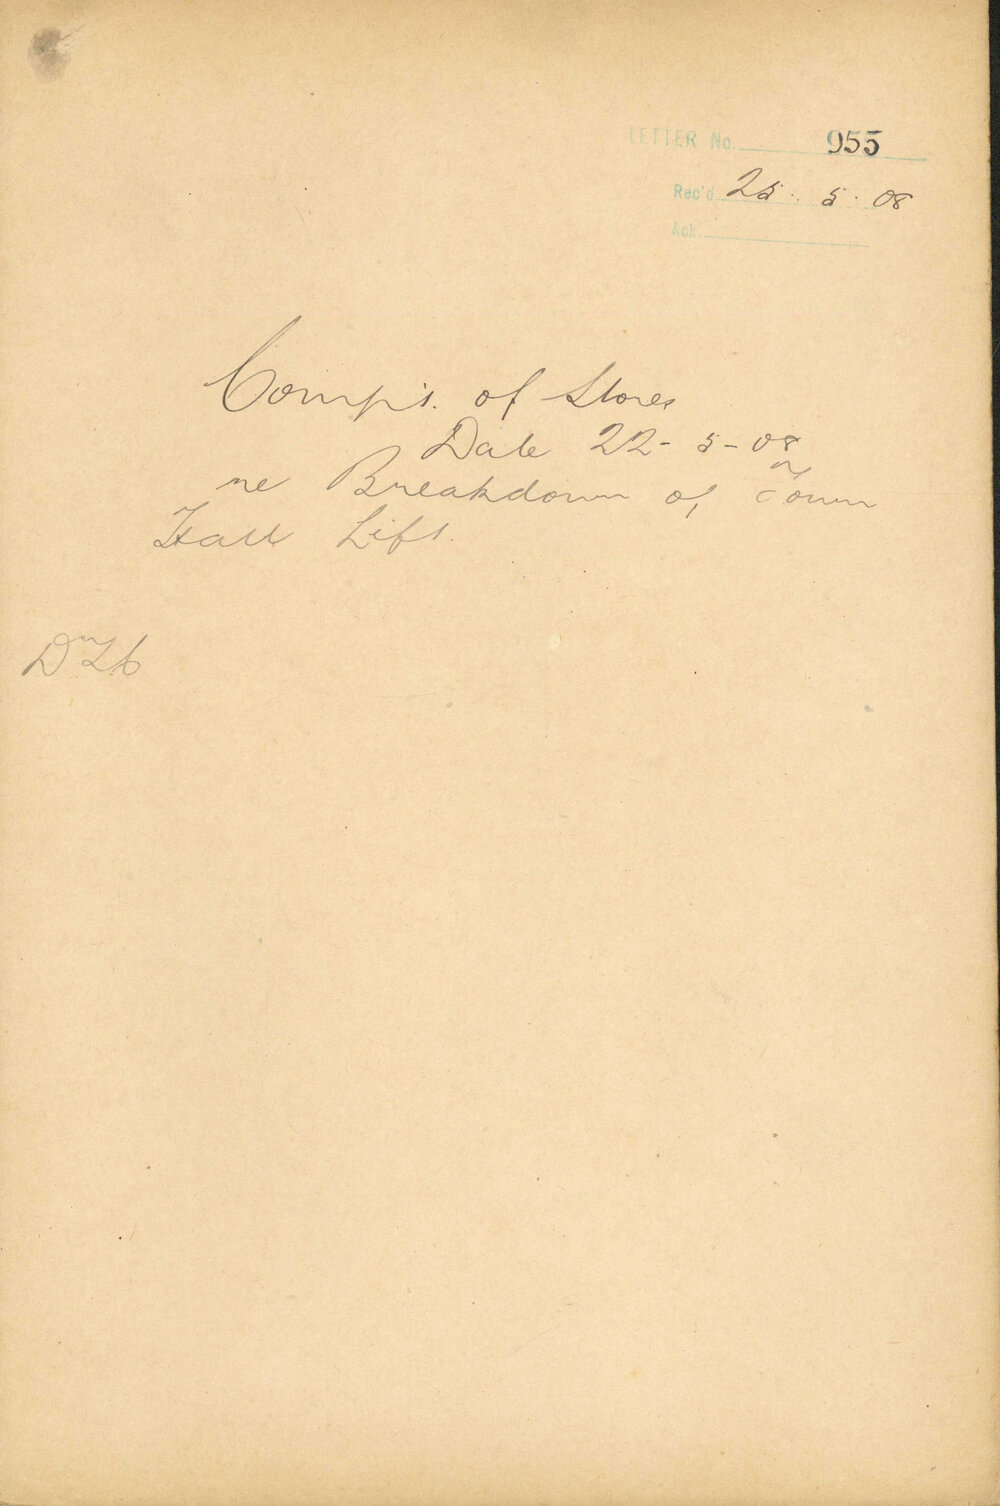 LETTER No. 955
Rec'd 25. 5. 08
Ack.
Comp't. of Stores
Date 22-5-08
re Breakdown of Town
Hall Lift.